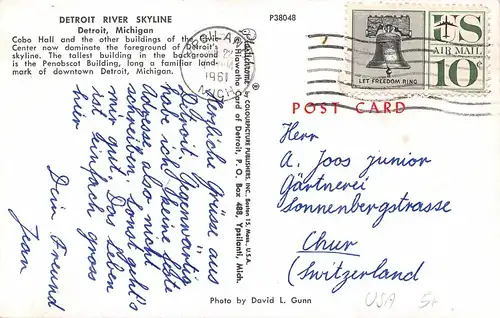 DETROIT RIVER SKYLINE
Detroit, Michigan
Cobo Hall and the other buildings of the Civic
Center now dominate the foreground of Detroit's
skyline. The tallest building in the background
is the Penobscot Building, long a familiar land-
mark of downtown Detroit, Michigan.
P38048
1961
MICH
U S
AIR MAIL
10¢
LET FREEDOM RING
POST CARD
Plastichrome ® by COLOURPICTURE PUBLISHERS, INC., Boston 15, Mass., U.S.A.
Hiawatha Card of Detroit, P. O. Box 488, Ypsilanti, Mich.
Herzliche Grüsse aus
Detroit. Gegenwärtig
habe ich keine feste
Adresse, also nicht
schreiben, sonst geht's
mir gut. Das Leben
ist einfach gross
hier
Dein Freund
Jean
Herr
A. Joos junior
Gärtnerei
Sonnenbergstrasse
Chur
(Switzerland)
Photo by David L. Gunn
USA